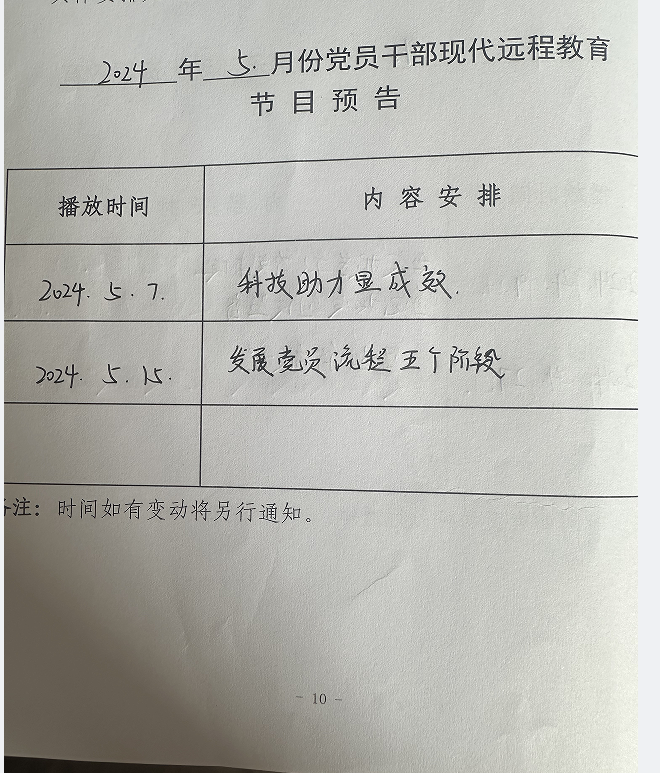 2024 年 5. 月份党员干部现代远程教育
节目预告
播放时间 内容安排
2024. 5. 7. 科技助力显成效.
2024. 5. 15. 发展党员流程五个阶段
注：时间如有变动将另行通知。
- 10 -